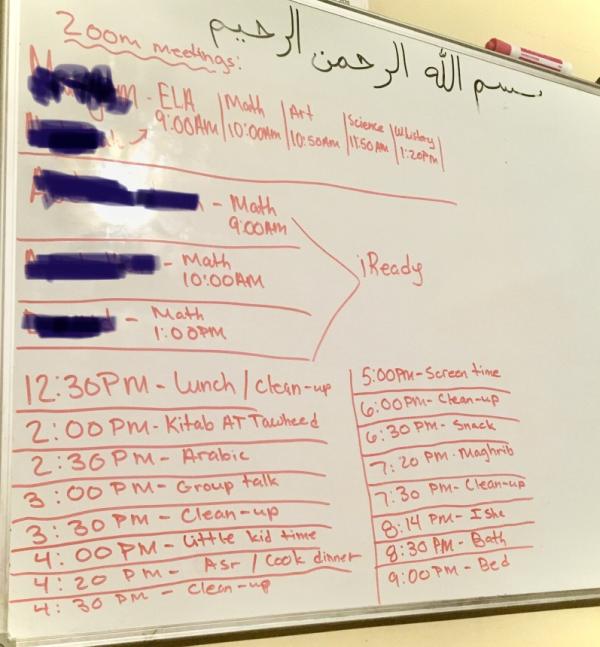 بسم الله الرحمن الرحيم
Zoom meetings:
ELA 9:00AM | Math 10:00AM | Art 10:50AM | Science 11:50AM | W History 1:20PM
- Math
9:00AM
- Math
10:00AM
- Math
1:00PM
iReady
12:30PM - Lunch / Clean-up
2:00PM - Kitab AT Tawheed
2:30PM - Arabic
3:00PM - Group talk
3:30PM - Clean-up
4:00PM - Little kid time
4:20PM - Asr / Cook dinner
4:30PM - Clean-up
5:00PM - Screen time
6:00PM - Clean-up
6:30PM - Snack
7:20PM - Maghrib
7:30PM - Clean-up
8:14PM - Isha
8:30PM - Bath
9:00PM - Bed